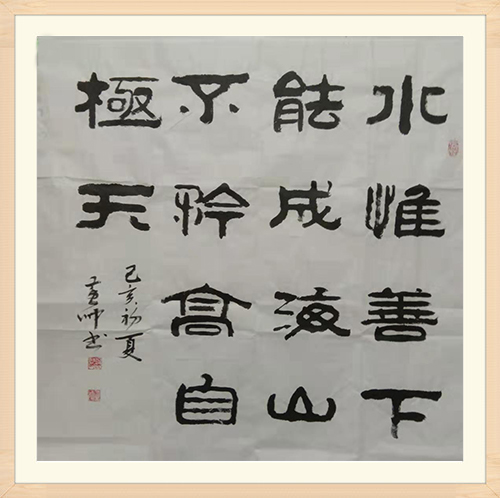 水惟善下
能成海山
不矜高自
極天
己亥初夏
书